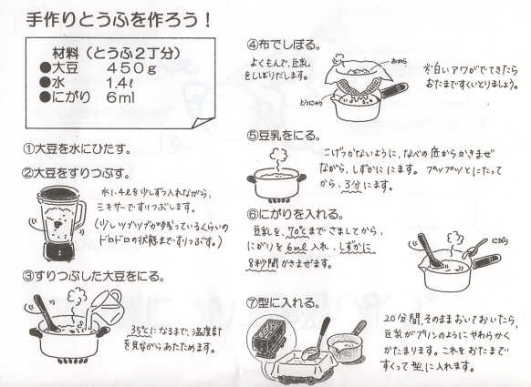 手作りとうふを作ろう！
材料（とうふ２丁分）
●大豆　４５０ｇ
●水　１.４ℓ
●にがり　６ml
①大豆を水にひたす。
②大豆をすりつぶす。
水1.4ℓを少しずつ入れながら、
ミキサーですりつぶします。
（少しツブツブが残っているくらいの
ドロドロの状態まですりつぶす。）
③すりつぶした大豆をにる。
になるまで、温度計
を見ながらあたためます。
④布でしぼる。
よくもんで、豆乳
をしぼりだします。
おから
とうにゅう
白いアワがでてきたら
おたまですくいとりましょう。
⑤豆乳をにる。
こげつかないように、なべの底からかきまぜ
ながら、しずかににます。フツフツとにたって
から、3分にます。
⑥にがりを入れる。
豆乳を、70℃までさましてから、
にがりを6mℓ入れ、しずかに
8秒間かきまぜます。
にがり
⑦型に入れる。
20分間、そのままおいておいたら、
豆乳がプリンのようにやわらかく
かたまります。これをおたまで
すくって型に入れます。